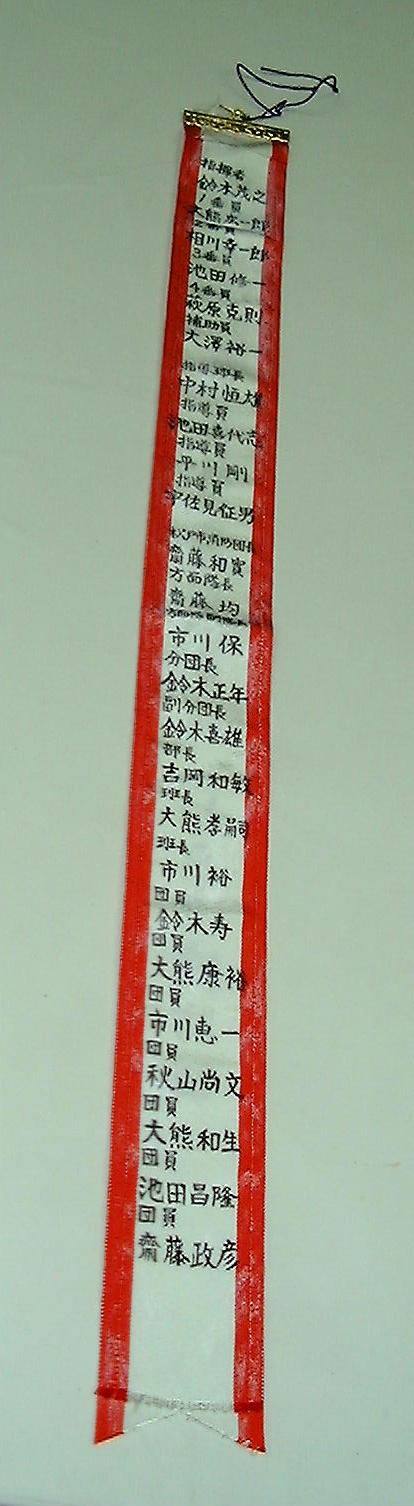 指揮者
鈴木茂之
1番員
大熊宏一郎
2番員
相川幸一郎
3番員
池田修一
4番員
萩原克則
補助員
大澤裕一
指導部長
中村恒雄
指導員
池田喜代志
指導員
平川剛
指導員
宇佐見征男
市消防団長
齋藤和實
方面隊長
齋藤均
市川保
分団長
鈴木正年
副分団長
鈴木喜雄
部長
吉岡和敏
班長
大熊孝嗣
班長
市川裕
団員
鈴木寿
団員
大熊康裕
団員
市川恵一
団員
秋山尚文
団員
大熊和生
団員
池田昌隆
団員
齋藤政彦